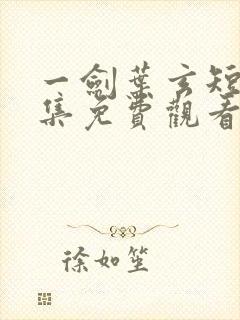 一劍葉玄短
集免費觀看
徐如笙